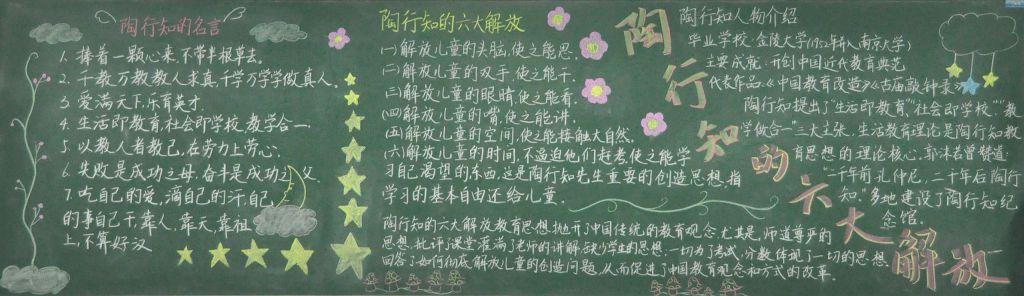 陶行知的名言
1. 捧着一颗心来,不带半根草去。
2. 千教万教教人求真,千学万学学做真人。
3. 爱满天下,乐育英才.
4. 生活即教育,社会即学校,教学合一.
5. 以教人者教己,在劳力上劳心.
6. 失败是成功之母,奋斗是成功之父
7. 吃自己的爱,滴自己的汗,自己
的事自己干,靠人,靠天,靠祖
上,不算好汉
陶行知的六大解放
(一)解放儿童的头脑,使之能思.
(二)解放儿童的双手,使之能干.
(三)解放儿童的眼睛,使之能看.
(四)解放儿童的嘴,使之能讲.
(五)解放儿童的空间,使之能接触大自然.
(六)解放儿童的时间,不逼迫他们赶考,使之能学
习自己渴望的东西,这是陶行知先生重要的创造思想,指
学习的基本自由还给儿童.
陶行知的六大解放教育思想,抛开中国传统的教育观念,尤其是,师道尊严的
思想,批评了课堂灌满了老师的讲解,缺少学生的思想.一切为了考试,分数体现了一切的思想.
回答了如何彻底解放儿童的创造问题,从而促进了中国教育观念和方式的改革.
陶行知的六大解放
陶行知人物介绍
毕业学校:金陵大学(1952年并入南京大学)
主要成就:开创中国近代教育典范
代表作品:《中国教育改造》《古庙敲钟录》
陶行知提出了"生活即教育""社会即学校""教
学做合一"三大主张,生活教育理论是陶行知教
育思想的理论核心,郭沫若曾赞道:
"二千年前孔仲尼,二千年后陶行
知."多地建设了陶行知纪
念馆.